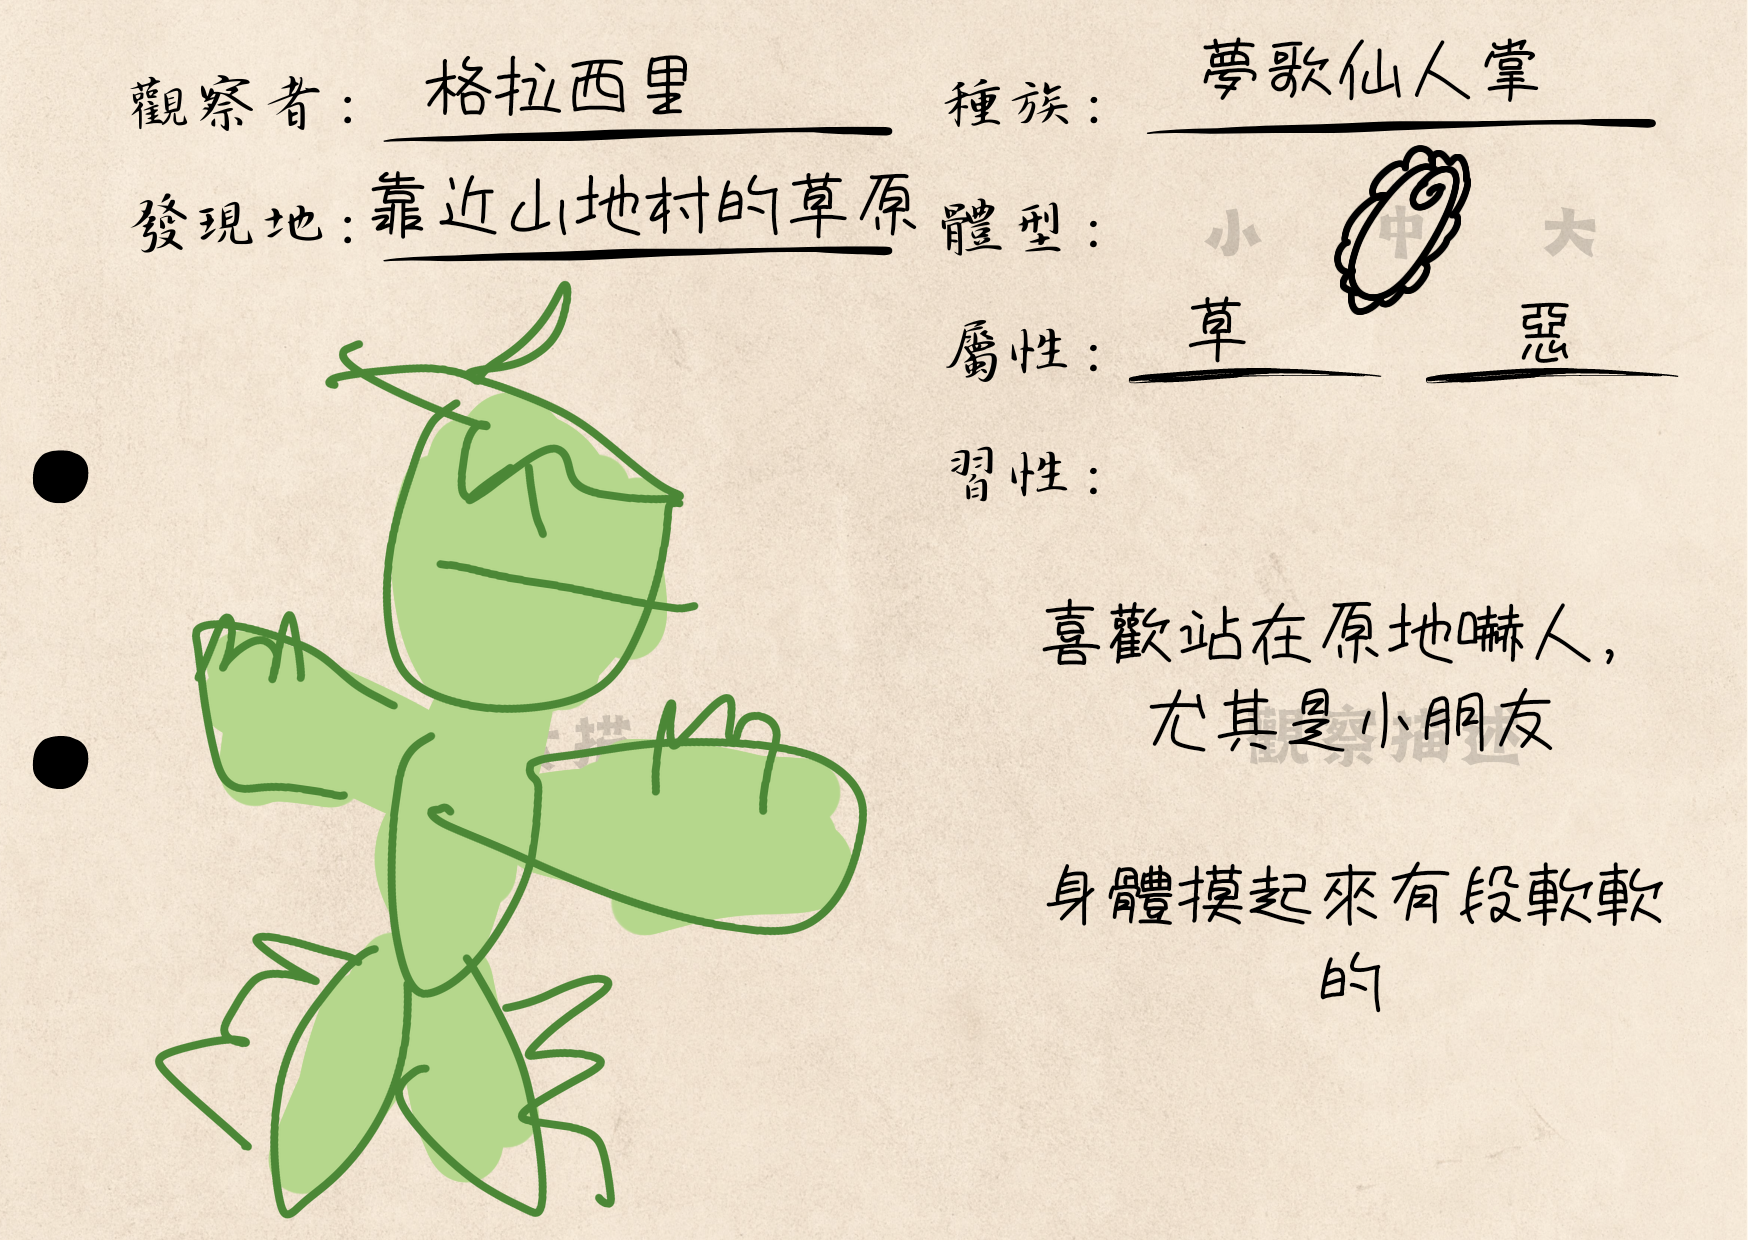 觀察者： 格拉西里
種族： 夢歌仙人掌
發現地： 靠近山地村的草原
體型： 小 中 大
屬性： 草 惡
習性：
喜歡站在原地嚇人，
尤其是小朋友
觀察描述
身體摸起來有段軟軟
的